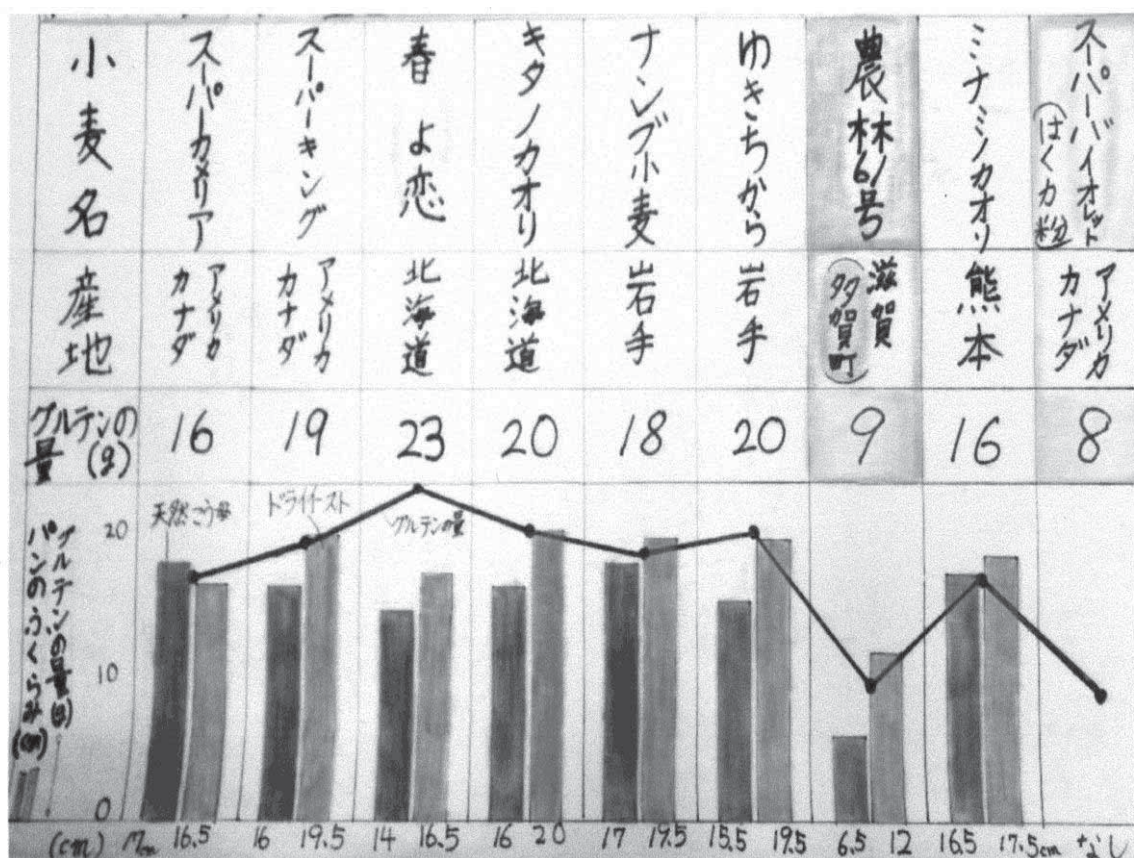 小麦名
スーパーカメリア
スーパーキング
春よ恋
キタノカオリ
ナンブ小麦
ゆきちから
農林61号
ミナミノカオリ
スーパーバイオレット
(はくカ粉)
産地
アメリカ
カナダ
アメリカ
カナダ
北海道
北海道
岩手
岩手
滋賀
(多賀町)
熊本
アメリカ
カナダ
グルテンの
量(g)
16
19
23
20
18
20
9
16
8
グルテンの量(g)
パンのふくらみ(cm)
20
10
0
天然こう母
ドライイースト
グルテンの量
(cm) 17cm 16.5 16 19.5 14 16.5 16 20 17 19.5 15.5 19.5 6.5 12 16.5 17.5cm なし